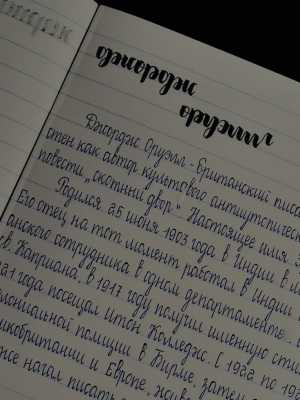 джордж
оруэлл
Джордж Оруэлл - британский писа
стен как автор культового антиутопическ
повести „скотный двор". Настоящее имя
Родился 25 июня 1903 года в Индии в
Его отец на тот момент работал в Индии
анского сотрудника в одном департаменте
св. Каприана, в 1917 году получил именную сти
21 года посещал итон Колледж. С 1922 по 19
олониальной полиции в Бирме, затем
икобритании и Европе, жив
же начал писать